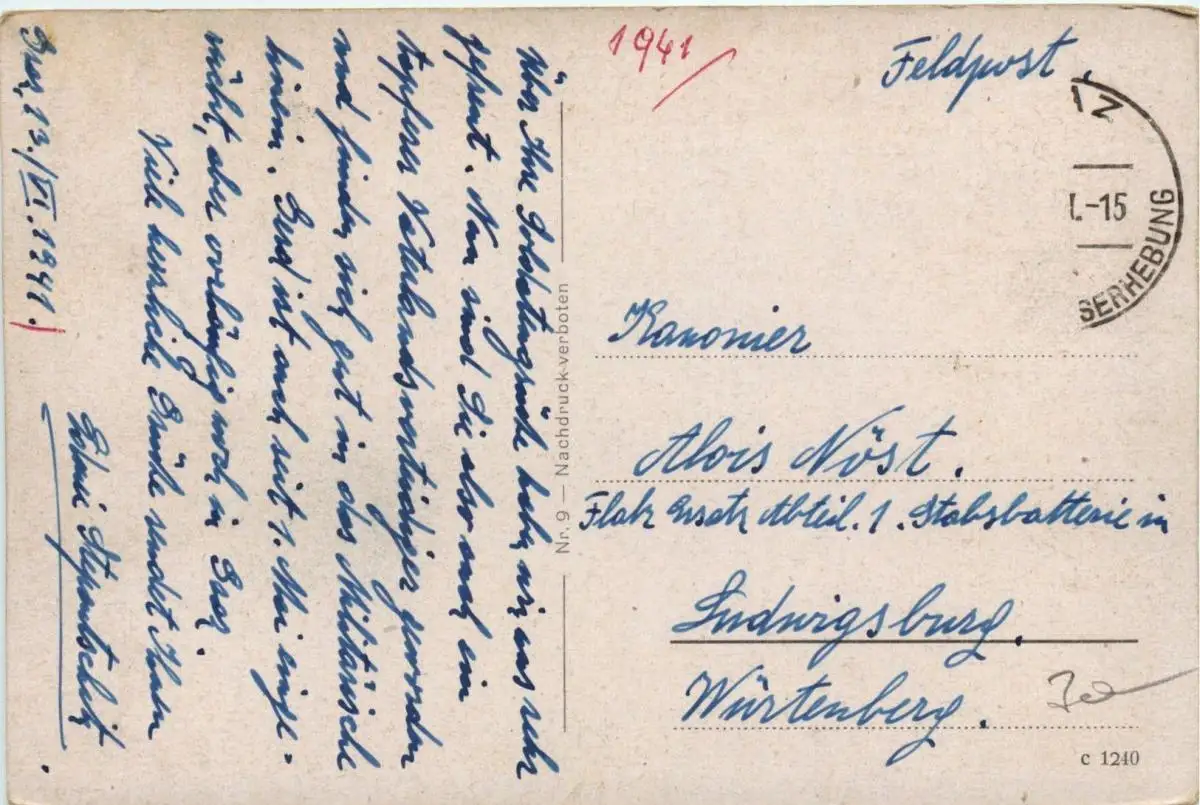 Graz, 13./VI.1941.
Über Ihre Soldatengrüße haben wir uns sehr
gefreut. Nun sind Sie also auch ein
tapferer Vaterlandsverteidiger geworden
und finden sich gut in das Militärische
hinein. Gerd ist auch seit 1. Mai einge-
rückt, aber vorläufig noch in Graz.
Viele herzliche Grüße sendet Ihnen
1941
Feldpost.
Z
I.-15
SERHEBUNG
Kanonier
Alois Nöst.
Flak Ersatz Abteil. 1. Stabsbatterie in
Ludwigsburg.
Würtenberg.
Nr. 9 — Nachdruck verboten
c 1240